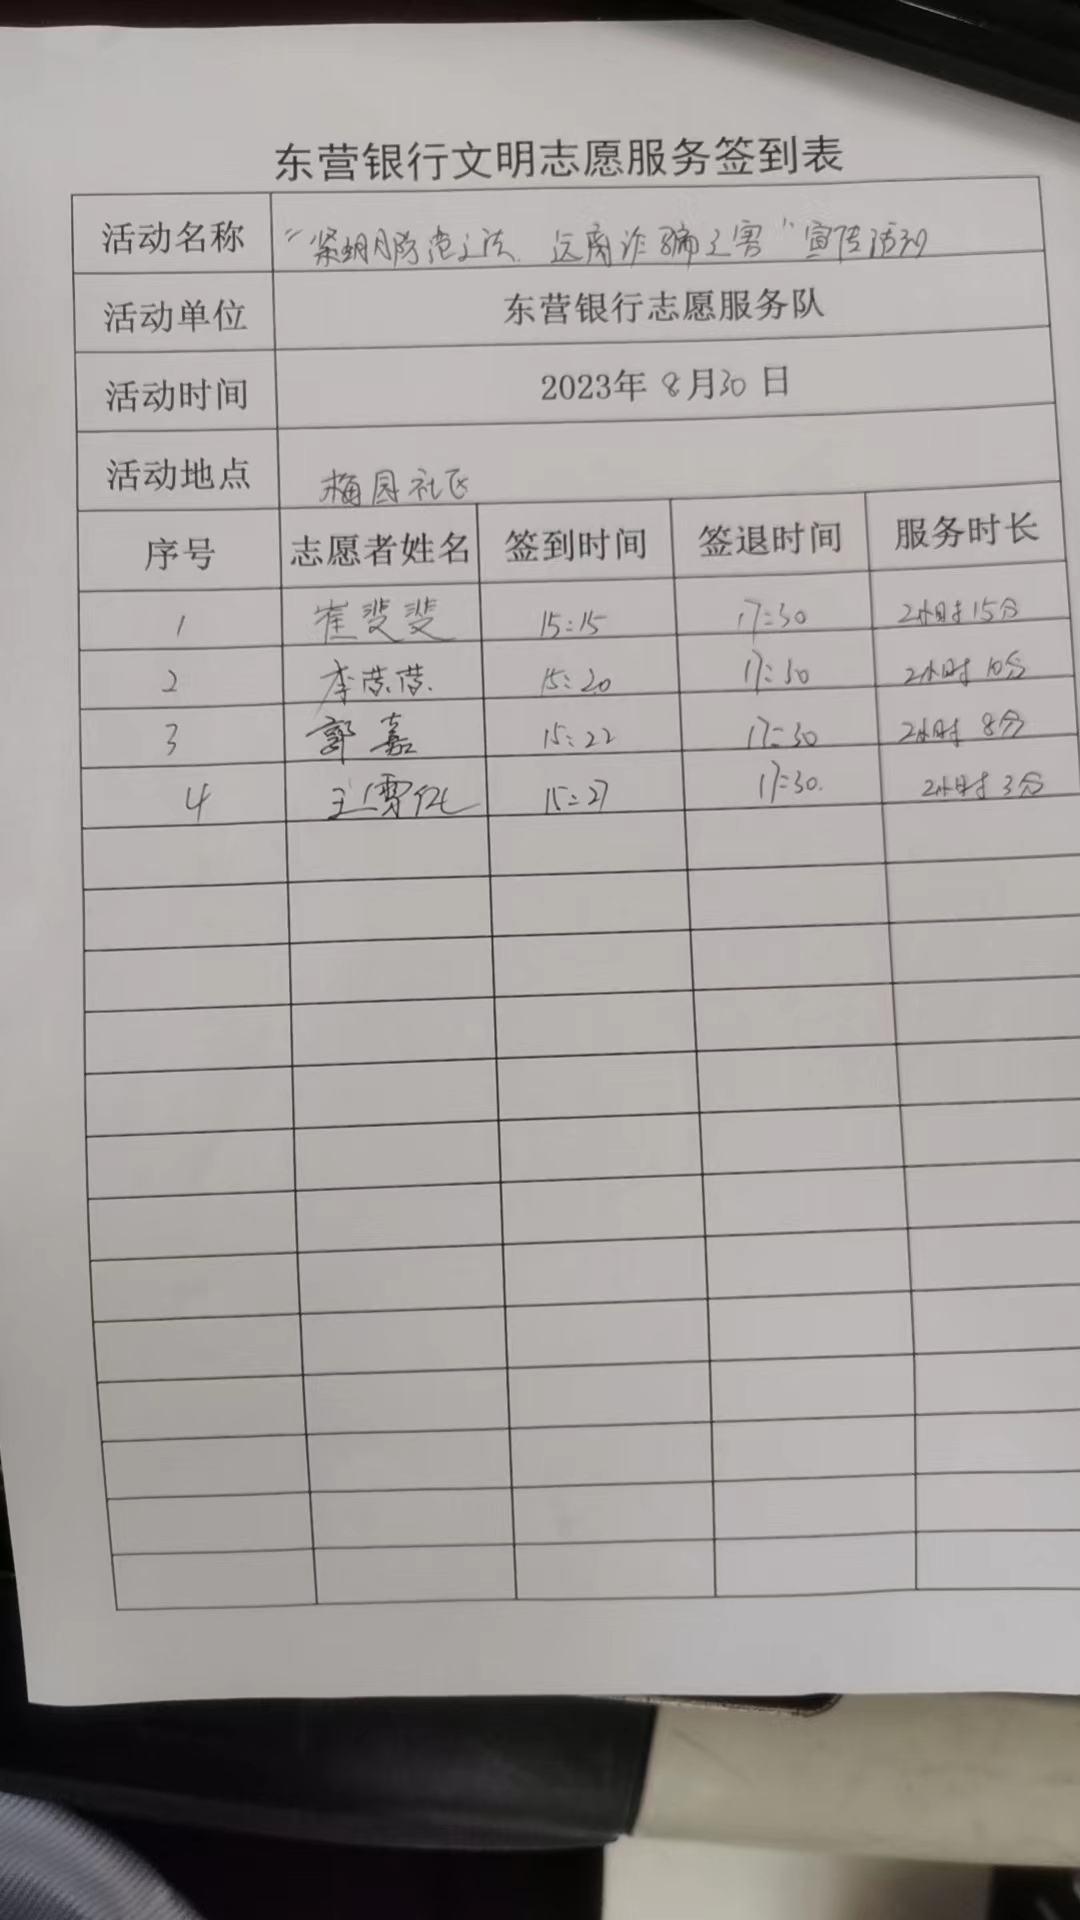 东营银行文明志愿服务签到表
活动名称 "紧绷防范之弦 远离诈骗之害"宣传活动
活动单位 东营银行志愿服务队
活动时间 2023年8月30日
活动地点 梅园社区
序号 志愿者姓名 签到时间 签退时间 服务时长
1 崔斐斐 15:15 17:30 2小时15分
2 李 15:20 17:30 2小时10分
3 郭嘉 15:22 17:30 2小时8分
4 王雪 15:27 17:30 2小时3分